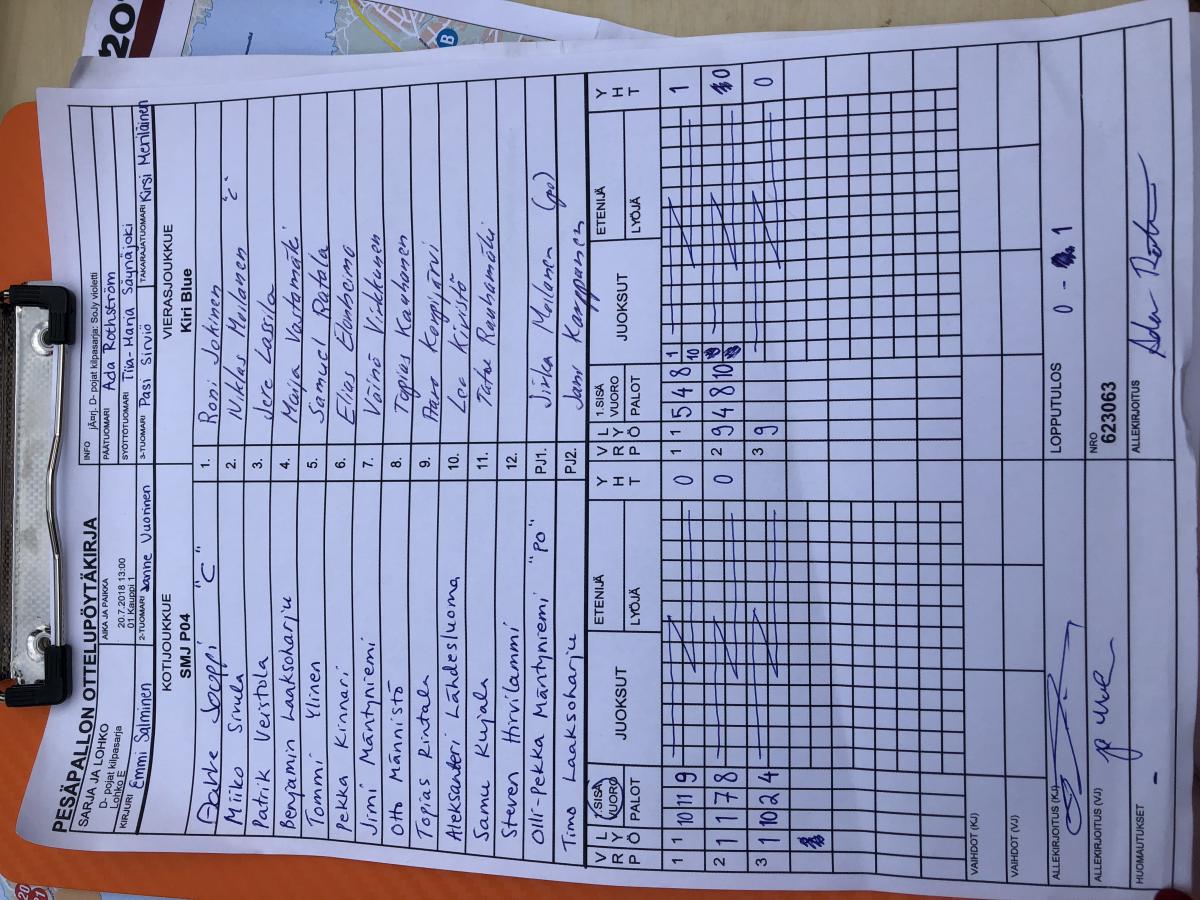 PESÄPALLON OTTELUPÖYTÄKIRJA
SARJA JA LOHKO
D- pojat kilpasarja
Lohko E
AIKA JA PAIKKA
20.7.2018 13:00
01 Kauppi 1
INFO jÄ¤rj. D- pojat kilpasarja: SoJy violetti
PÄÄTUOMARI Ada Rothström
SYÖTTÖTUOMARI Tiia-Maria Säynäjoki
KIRJURI Emmi Salminen
2-TUOMARI Janne Vuorinen
3-TUOMARI Pasi Sirviö
TAKARAJATUOMARI Kirsi Meriläinen
KOTIJOUKKUE
SMJ P04
VIERASJOUKKUE
Kiri Blue
"C" 1. Roni Jokinen
Miiko Sinula 2. Niklas Moilanen "C"
Patrik Veistola 3. Jere Lassila
Benjamin Laaksoharju 4. Maija Vastamäki
Tommi Ylinen 5. Samuel Ratala
Pekka Kinnari 6. Elias Elonheimo
Jimi Mäntyniemi 7. Väinö Virkkunen
Otto Männistö 8. Topias Kauhanen
Topias Rintala 9.
Aleksanteri Lähdesluoma 10. Leo Kivistö
Samu Kujala 11. Rauhamäki
Steven Hirvilammi 12.
Olli-Pekka Mäntyniemi "PO" PJ1. Jirka Moilanen (po)
Timo Laaksoharju PJ2. Jani Karppanen
V R P L Y Ö 1.SISÄ VUORO PALOT JUOKSUT ETENIJÄ LYÖJÄ Y H T
V R P L Y Ö 1.SISÄ VUORO PALOT JUOKSUT ETENIJÄ LYÖJÄ Y H T
1 1 10 11 9 0 1 1 5 4 8 1 10 1
2 1 1 7 8 0 2 9 4 8 10 0
3 1 10 2 4 3 9 0
VAIHDOT (KJ)
VAIHDOT (VJ)
ALLEKIRJOITUS (KJ)
LOPPUTULOS 0 - 1
ALLEKIRJOITUS (VJ)
NRO
623063
HUOMAUTUKSET
-
ALLEKIRJOITUS
B